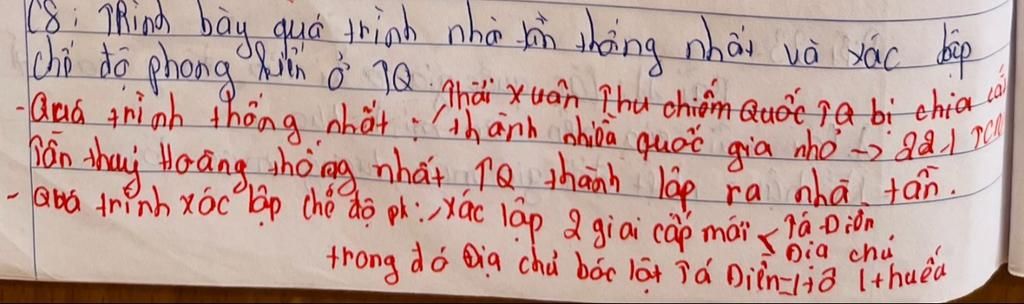 C8: Trình bày quá trình nhà tần thống nhất và xác lập
chế độ phong kiến ở TQ.
- Quá trình thống nhất: Thời xuân Thu chiếm Quốc TQ bị chia cắt
thành nhiều quốc gia nhỏ -> 221 TCN
Tần thuỷ Hoàng thống nhất TQ thành lập ra nhà tần.
- Quá trình xác lập chế độ pk: xác lập 2 giai cấp mới < Tá Điền
Địa chủ
trong đó Địa chủ bóc lột Tá Điền = tô thuế